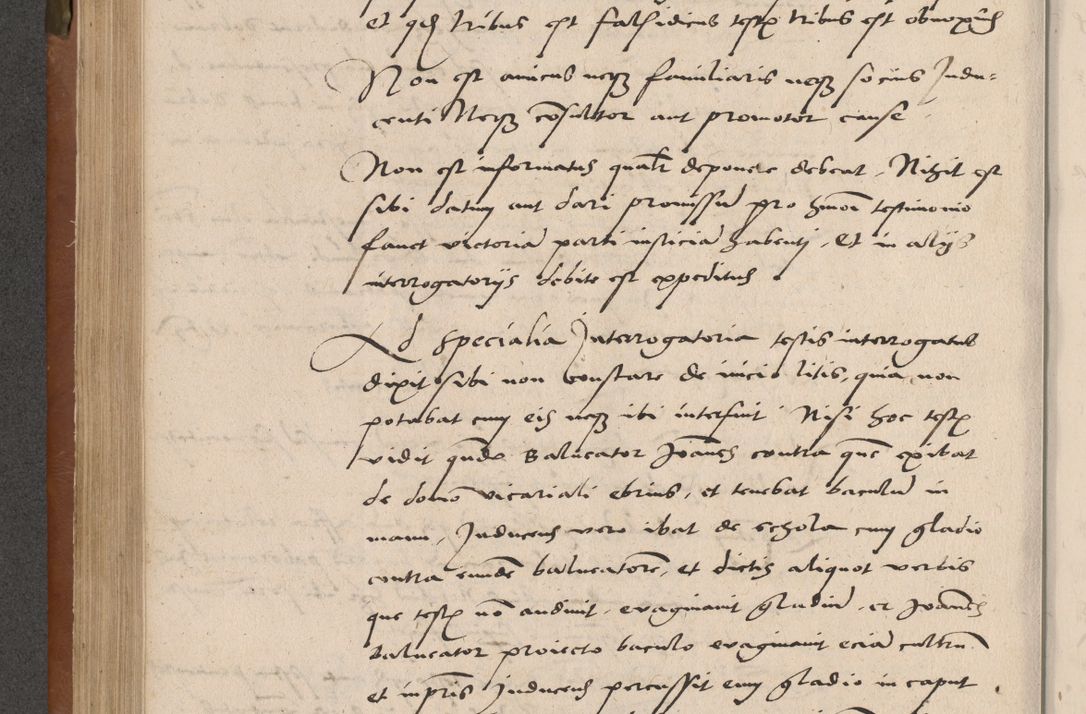 Et qui tribus est falsidicus testis tribus est obnoxius
Non est amicus neque familiaris neque socius Indu-
centi Neque consultor aut promotor cause
Non est informatus qualiter deponere debeat, Nihil est
sibi datum aut dari promissum pro huiusmodi testimonio
favet victoriam parti iusticiam habenti, Et in alijs
interrogatorijs debite est expeditus
Ad specialia Interrogatoria testis interrogatus
dixit sibi non constare de inicio litis, quia non
potabat cum eis neque ibi interfuit Nisi hoc testis
vidit quomodo Balneator Joannes contra quem exibat
de domo vicariali ebrius, et tenebat baculum in
manu, Inducens vero ibat de schola cum gladio
contra eundem balneatorem, et dictis aliquot verbis
que testis non audivit, evaginavit gladium, et Joannes
Balneator proiecto baculo evaginavit eciam cultrum
et inprimis Inducens percussit eum gladio in caput